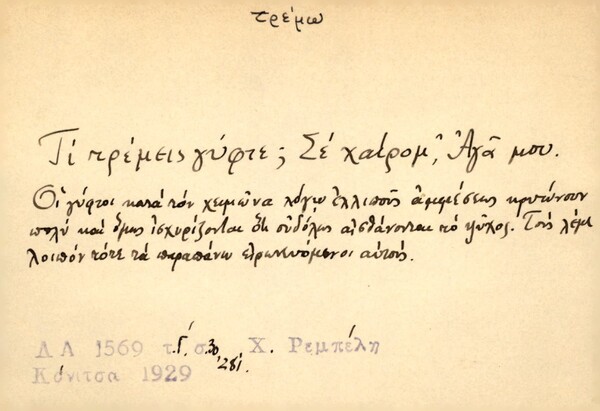 τρέμω
Τί τρέμεις γύφτε; Σέ χαίρομ', Ἀγᾶ μου.
Οἱ γύφτοι κατά τόν χειμῶνα λόγω ἐλλιποῦς ἀμφιέσεως κρυώνουν
πολύ καί ὅμως ἰσχυρίζονται ὅτι οὐδόλως αἰσθάνονται τό ψῦχος. Τούς λέμε
λοιπόν τότε τά παραπάνω εἰρωνευόμενοι αὐτούς.
Λ Α 1569 τ.Γ'. σ. 30 Χ. Ρεμπέλη
Κόνιτσα 1929 281.